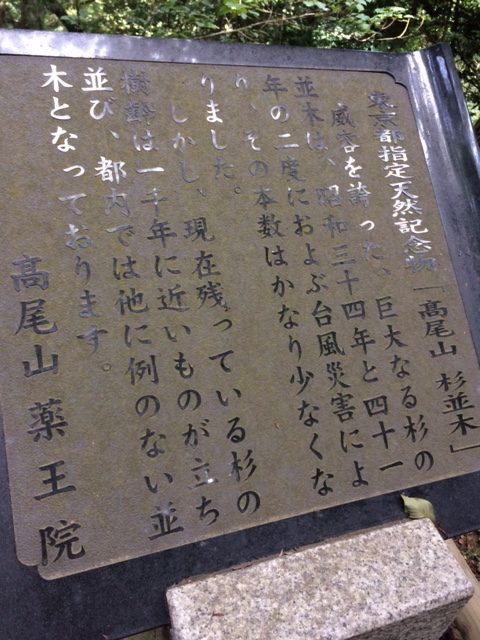 東京都指定天然記念物「高尾山 杉並木」
威容を誇った、巨大なる杉の
並木は、昭和三十四年と四十一
年の二度におよぶ台風災害によ
り、その本数はかなり少なくな
りました。
しかし、現在残っている杉の
樹齢は一千年に近いものが立ち
並び、都内では他に例のない並
木となっております。
高尾山薬王院